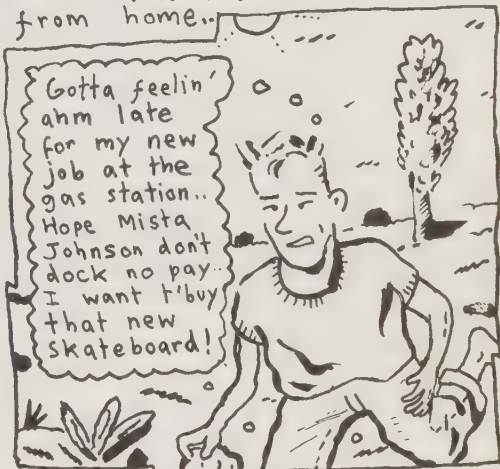 from home..
Gotta feelin'
ahm late
for my new
job at the
gas station..
Hope Mista
Johnson don't
dock no pay..
I want t'buy
that new
skateboard!